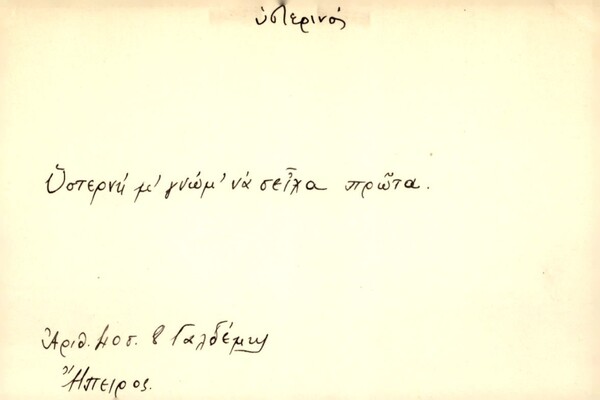 ὑστερινός
Ὑστερνή μ' γνώμ' νά σεἶχα πρῶτα.
Ἀριθ. 8 Γαλδέμης
Ἤπειρος.